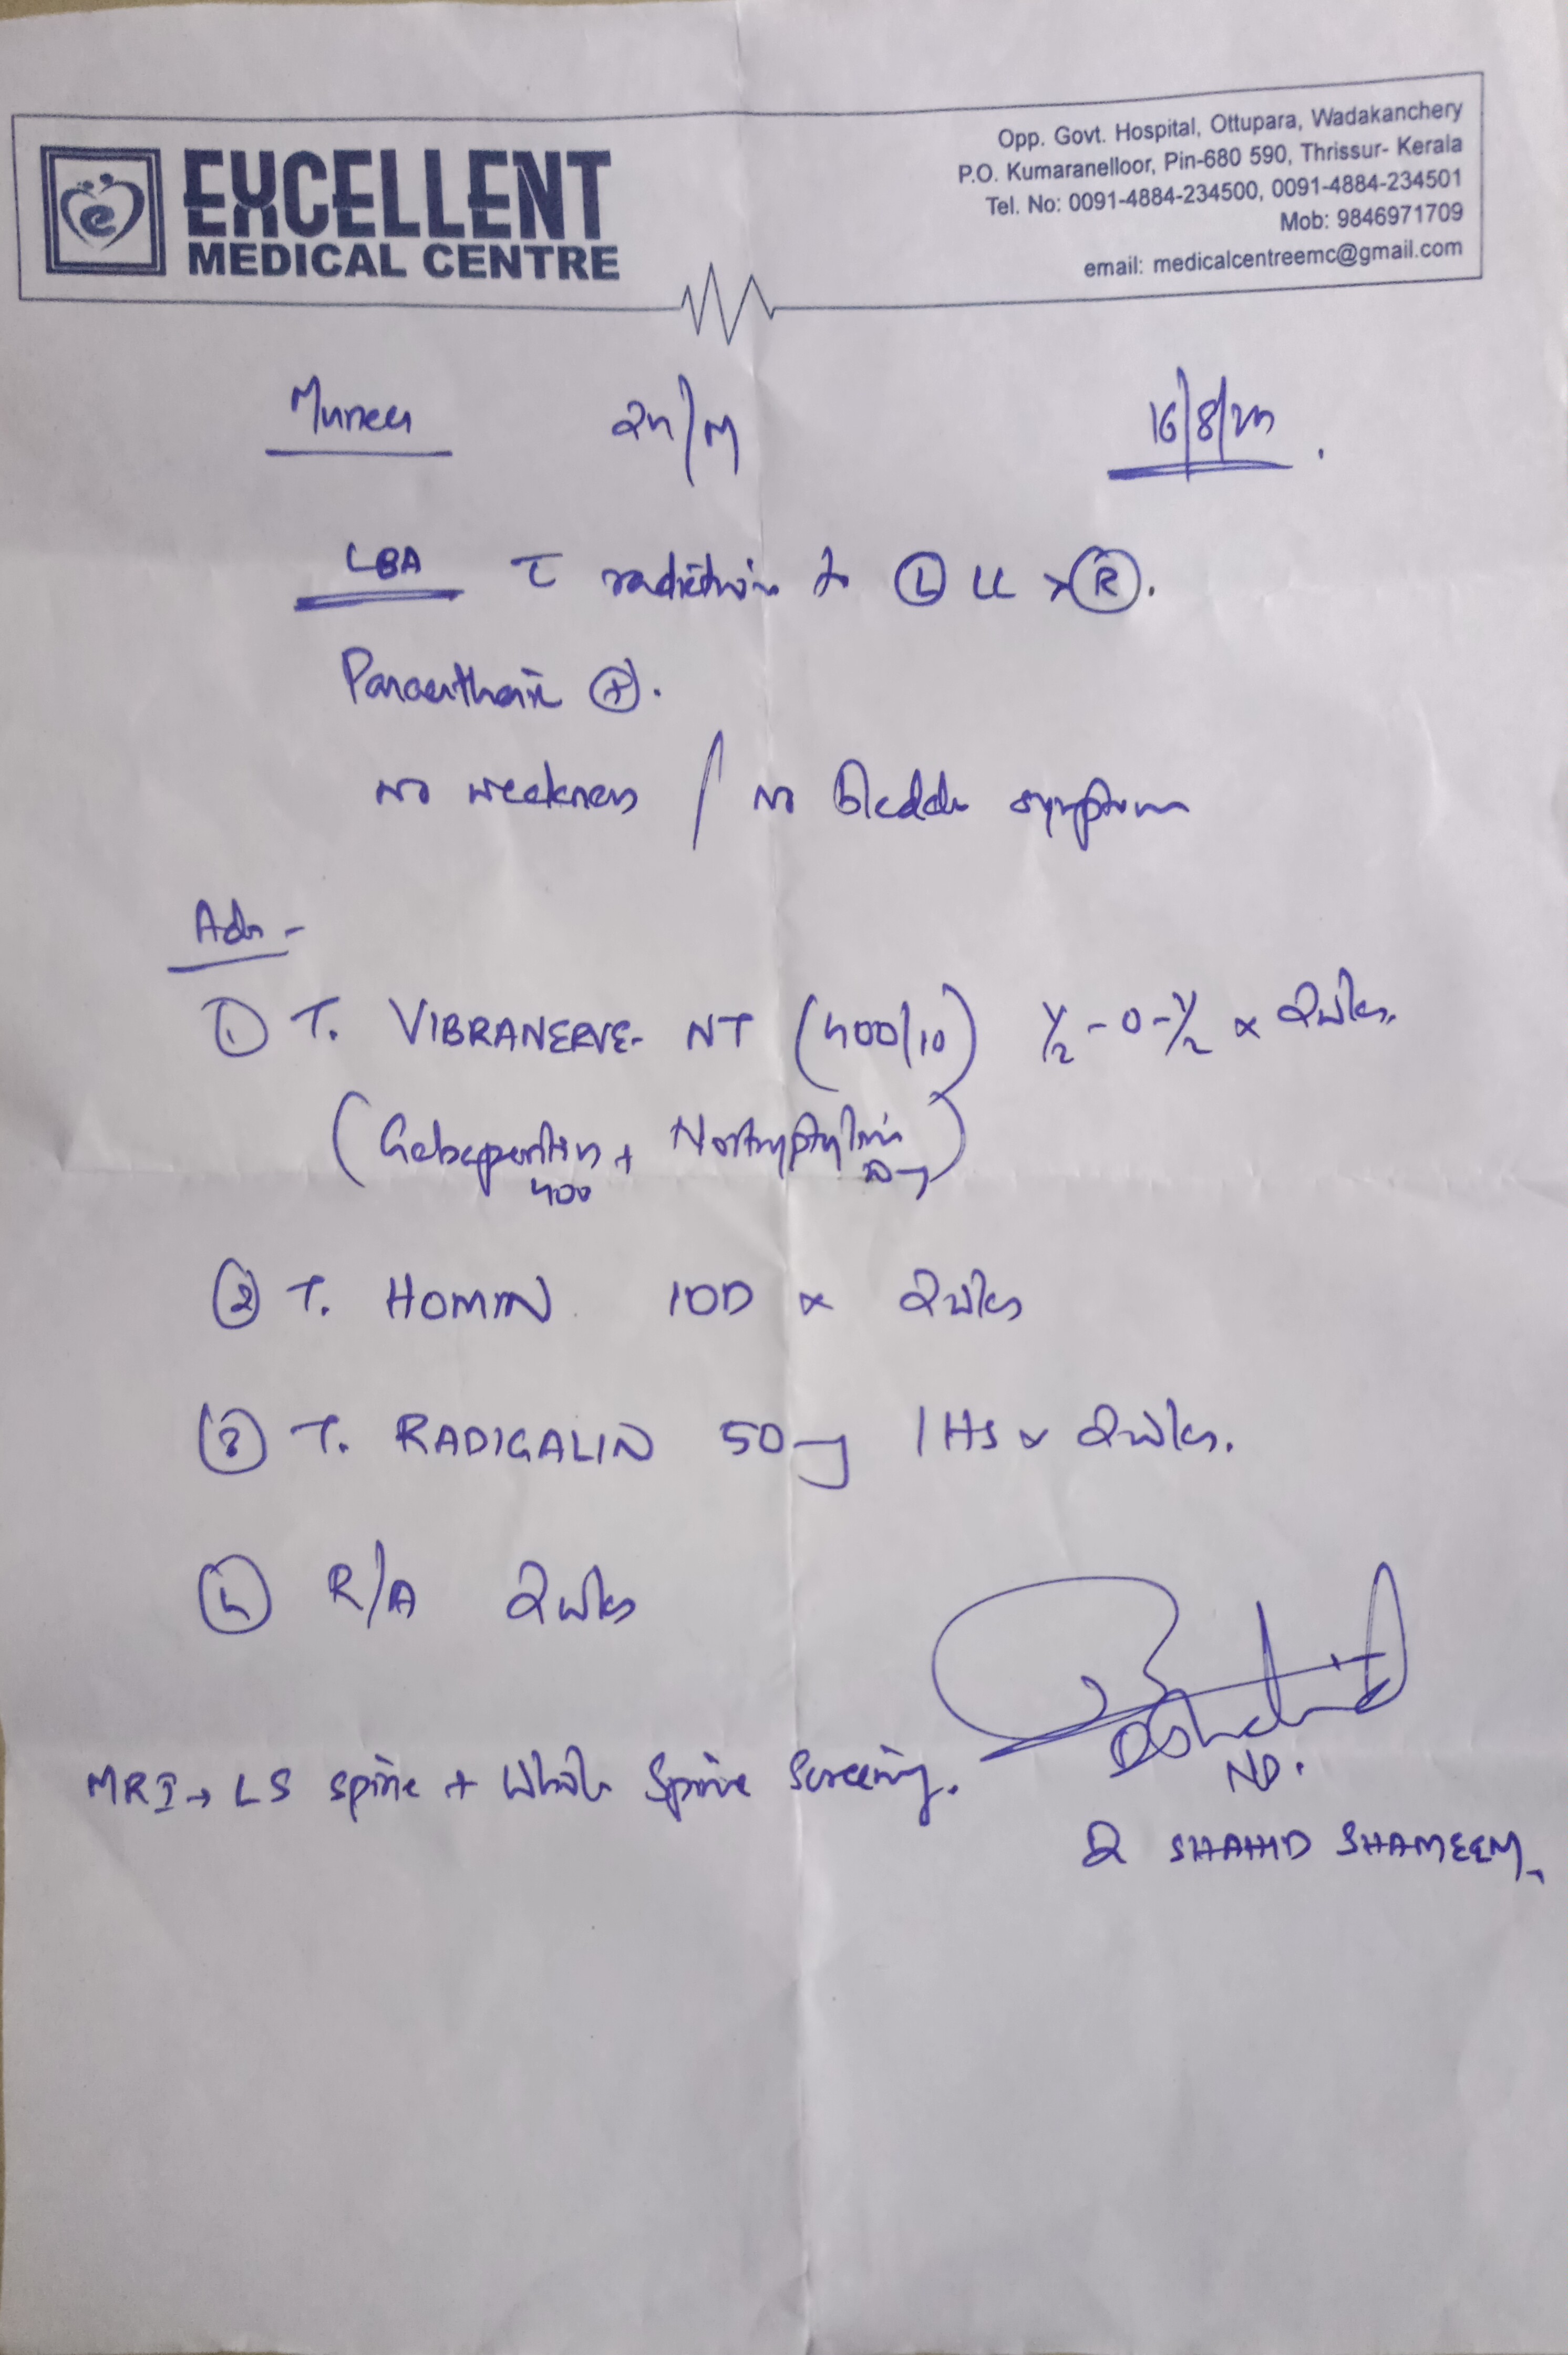 EXCELLENT
MEDICAL CENTRE
Opp. Govt. Hospital, Ottupara, Wadakanchery
P.O. Kumaranelloor, Pin-680 590, Thrissur- Kerala
Tel. No: 0091-4884-234500, 0091-4884-234501
Mob: 9846971709
email: medicalcentreemc@gmail.com
24/M 16/8/24
LBA radiation to L LL > R.
Paraesthesia +.
No weakness / No bladder symptoms
Adv -
① T. VIBRANERVE- NT (400/10) ½-0-½ x 2wks.
(Gabapentin 400 + Nortryptylin 10mg)
② T. HOMIN 1OD x 2wks
③ T. RADIGALIN 50mg 1HS x 2wks.
④ R/A 2wks
MRI → LS spine + Whole Spine Screening.
Dr SHAHID SHAMEEM